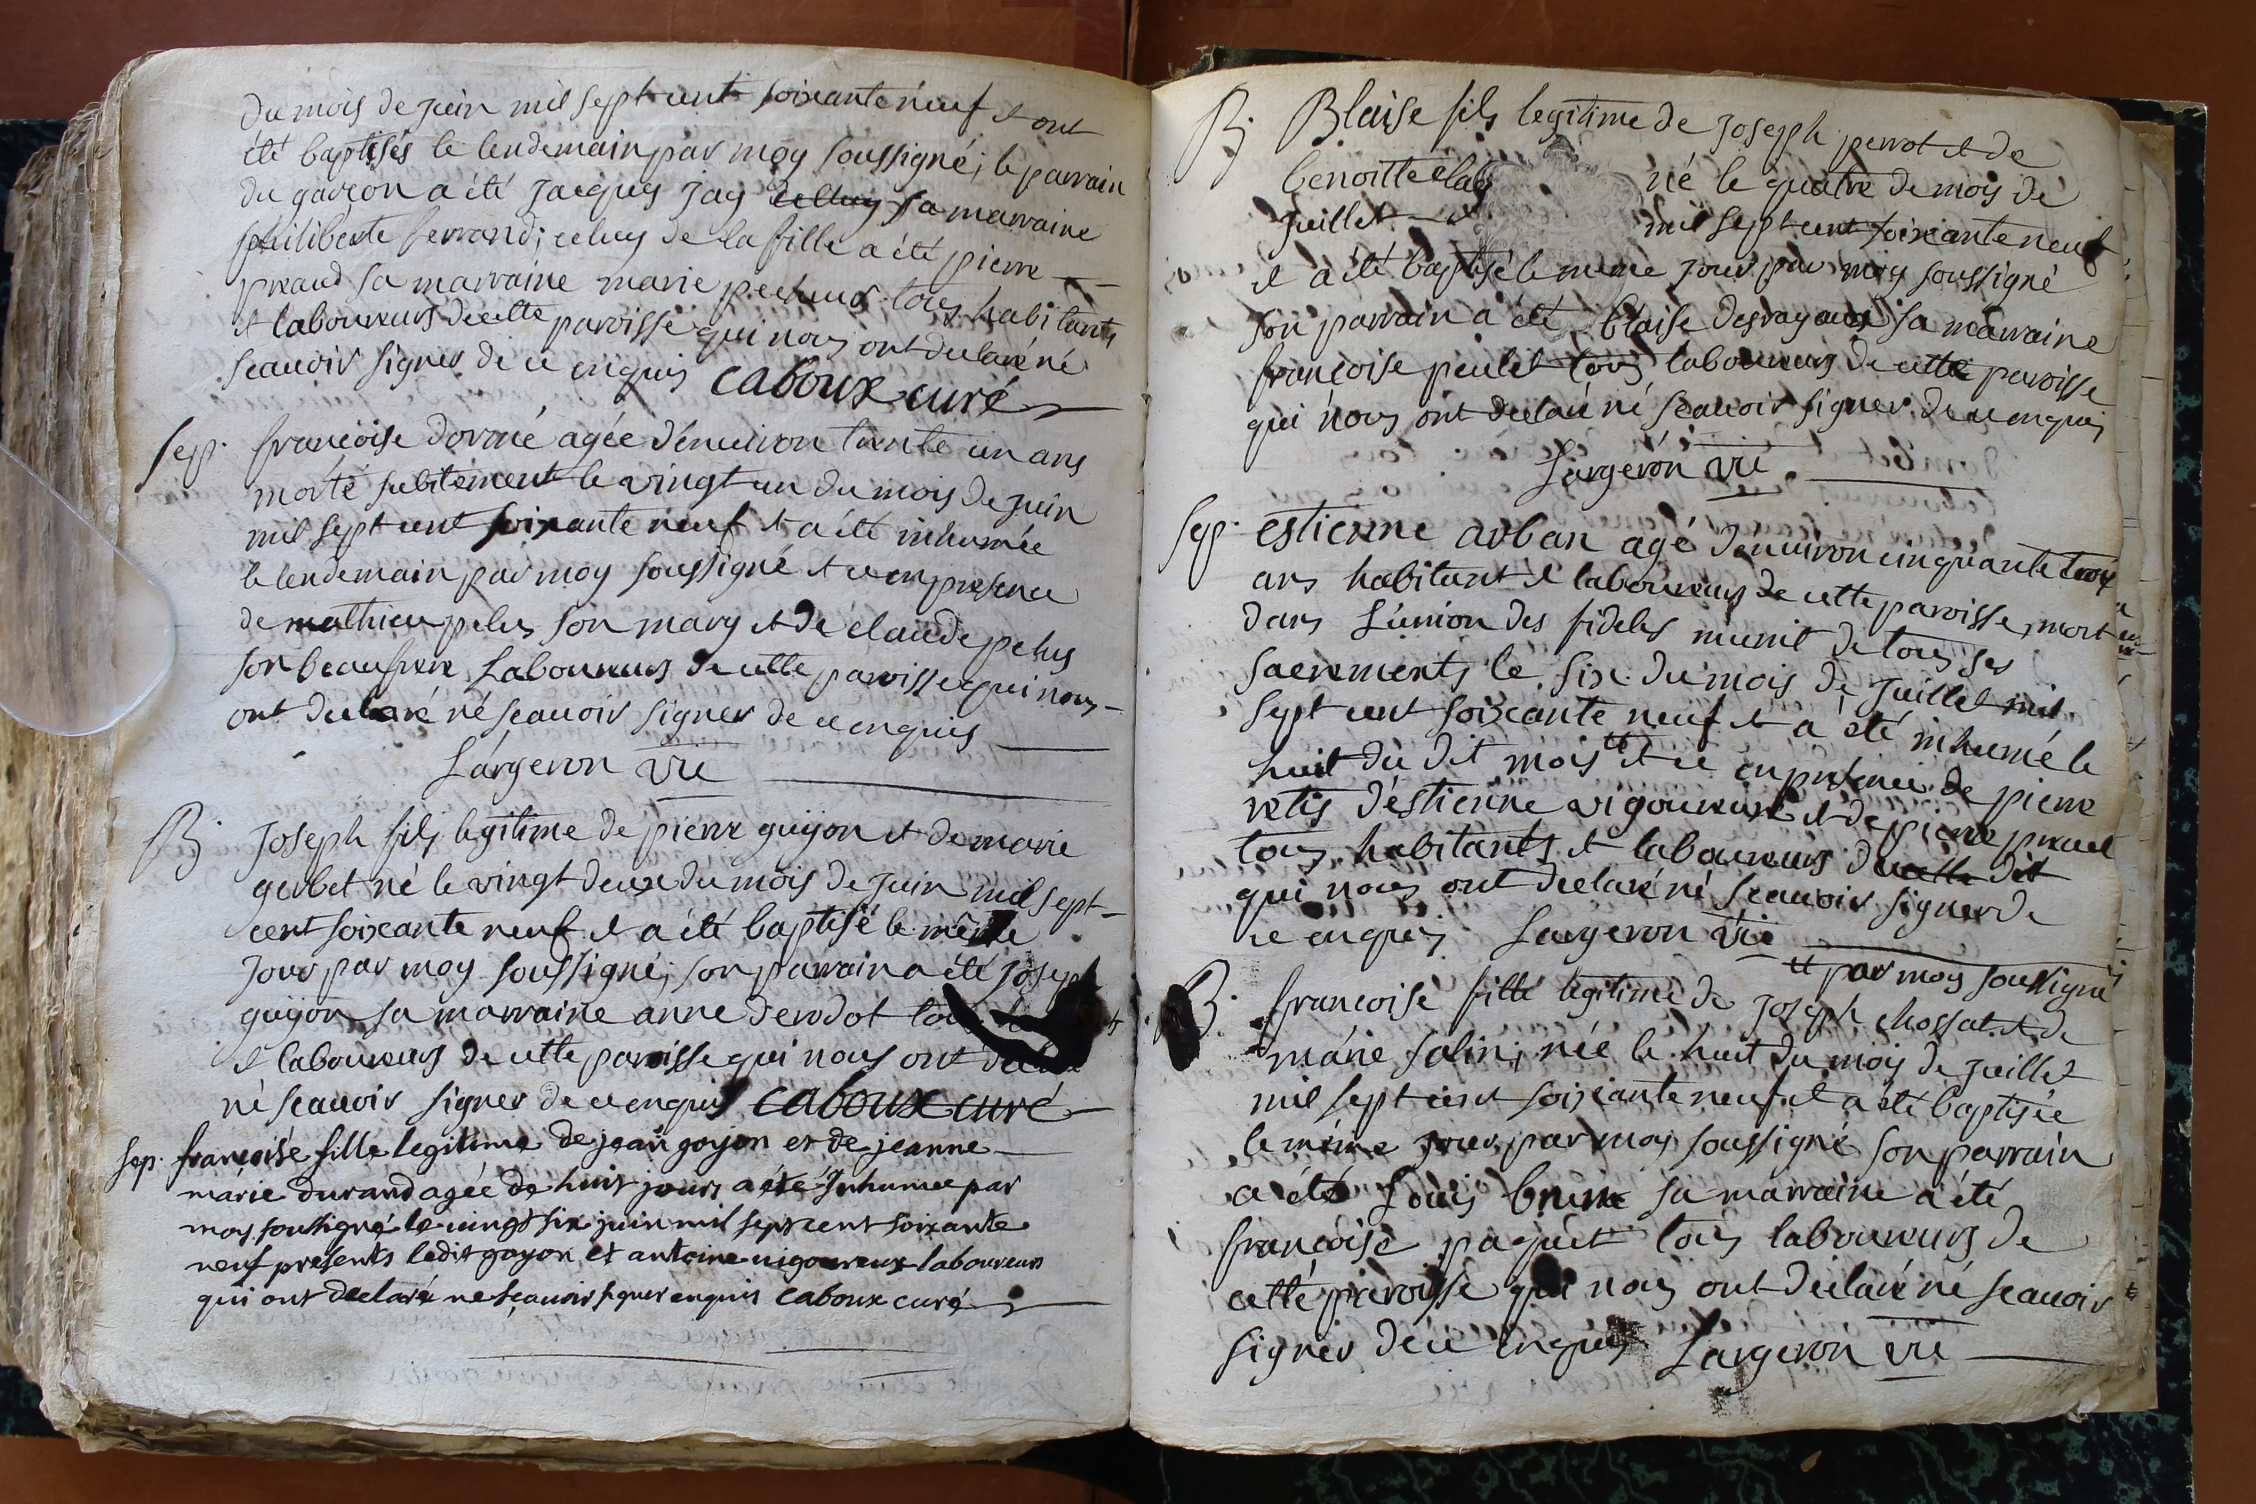 du mois de juin mil sept cent soixante neuf et ont
été baptisés le lendemain par moy soussigné; le parrain
du garçon a été jacques jay celluy sa marraine
philiberte ferrand; celuy de la fille a été pierre
preaud sa marraine marie pecheur tous habitants
et laboureurs de cette paroisse qui nous ont declaré né
scauoir signer de ce enquis caboux curé
sep. françoise dorné agée d'enuiron tante un ans
morte subitement le vingt un du mois de juin
mil sept cent soixante neuf et a été inhumée
le lendemain par moy soussigné et ce en presence
de mathieu pelus son mary et de claude pelus
son beaufrere Laboureurs de cette paroisse qui nous
ont declaré né scauoir signer de ce enquis
Largeron vic
B. Joseph fils legitime de pierre guijon et de marie
gerbet né le vingt deux du mois de juin mil sept
cent soixante neuf et a été baptisé le même
jour par moy soussigné; son parrain a été joseph
guijon sa marraine anne derodot tous
et laboureurs de cette paroisse qui nous ont
né scauoir signer de ce enquis caboux curé
sep. françoise fille legitime de jean goyon et de jeanne
marie durand agée de huit jours a été Inhumée par
moy soussigné le uingt six juin mil sept cent soixante
neuf presents ledit goyon et antoine uigoureux laboureurs
qui ont declaré ne sçauoir signer enquis caboux curé
B. Blaise fils legitime de Joseph perrot et de
benoitte né le quatre de mois de
juillet mil sept cent soixante neuf
et a été baptisé le meme jour par moy soussigné
son parrain a été blaise desrayaud sa marraine
françoise peulet tous laboureurs de cette paroisse
qui nous ont declaré né scauoir signer de ce enquis
Largeron vic
sep. estienne arban agé d'enuiron cinquante trois
ans habitant et laboureurs de cette paroisse, mort
dans L'union des fideles munit de tous ses
sacrements le six du mois de juillet mil
sept cent soixante neuf et a été inhumé le
huit du dit mois et ce en presence de pierre
retis d'estienne vigoureux et de pierre preaud
tous habitants et laboureurs
qui nous ont declaré né scauoir signer de
ce enquis Largeron vic
et par moy soussigné
B. françoise fille legitime de Joseph chossat et de
marie salin, née le huit du mois de juillet
mil sept cent soixante neuf et a été baptisée
le même jour par moy soussigné son parrain
a été Louis brune sa marraine a été
françoise paquet tous laboureurs de
cette paroisse qui nous ont declaré né scauoir
signer de ce enquis Largeron vic